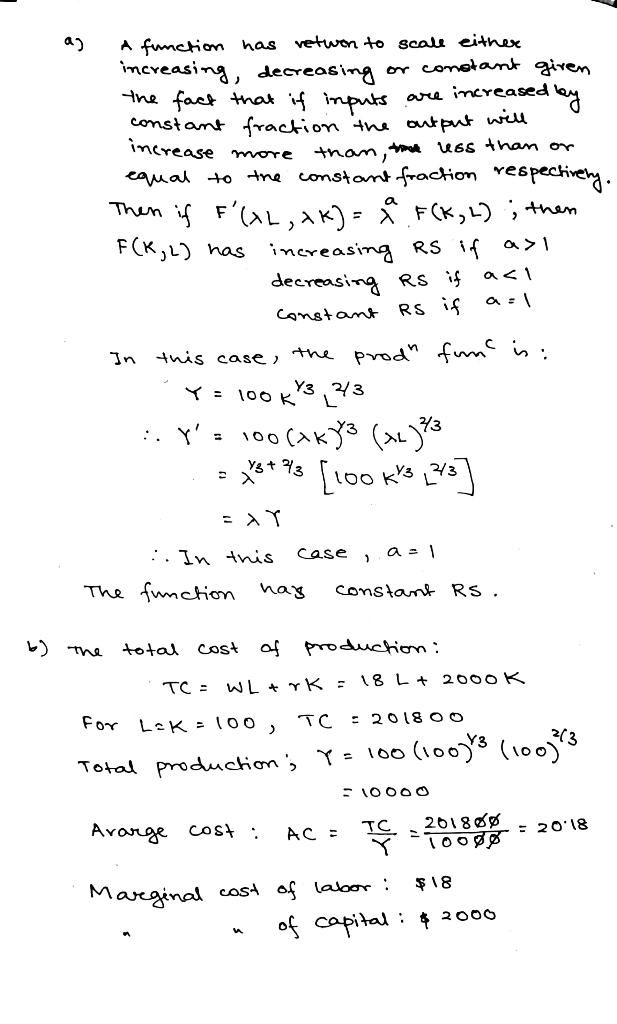 a) A function has return to scale either
increasing, decreasing or constant given
the fact that if inputs are increased by
constant fraction the output will
increase more than, less than or
equal to the constant fraction respectively.
Then if F'(λL, λK) = λ^a F(K,L) ; then
F(K,L) has increasing RS if a>1
decreasing RS if a<1
constant RS if a=1
In this case, the prodⁿ funᶜ is :
Y = 100 K^1/3 L^2/3
∴ Y' = 100 (λK)^1/3 (λL)^2/3
= λ^1/3+2/3 [100 K^1/3 L^2/3]
= λY
∴ In this case, a=1
The function has constant RS.
b) The total cost of production :
TC = WL + rK = 18 L + 2000 K
For L=K=100, TC = 201800
Total production ; Y = 100 (100)^1/3 (100)^2/3
= 10000
Avarge cost : AC = TC/Y = 201800/10000 = 20.18
Marginal cost of labor : $18
" " of capital : $2000